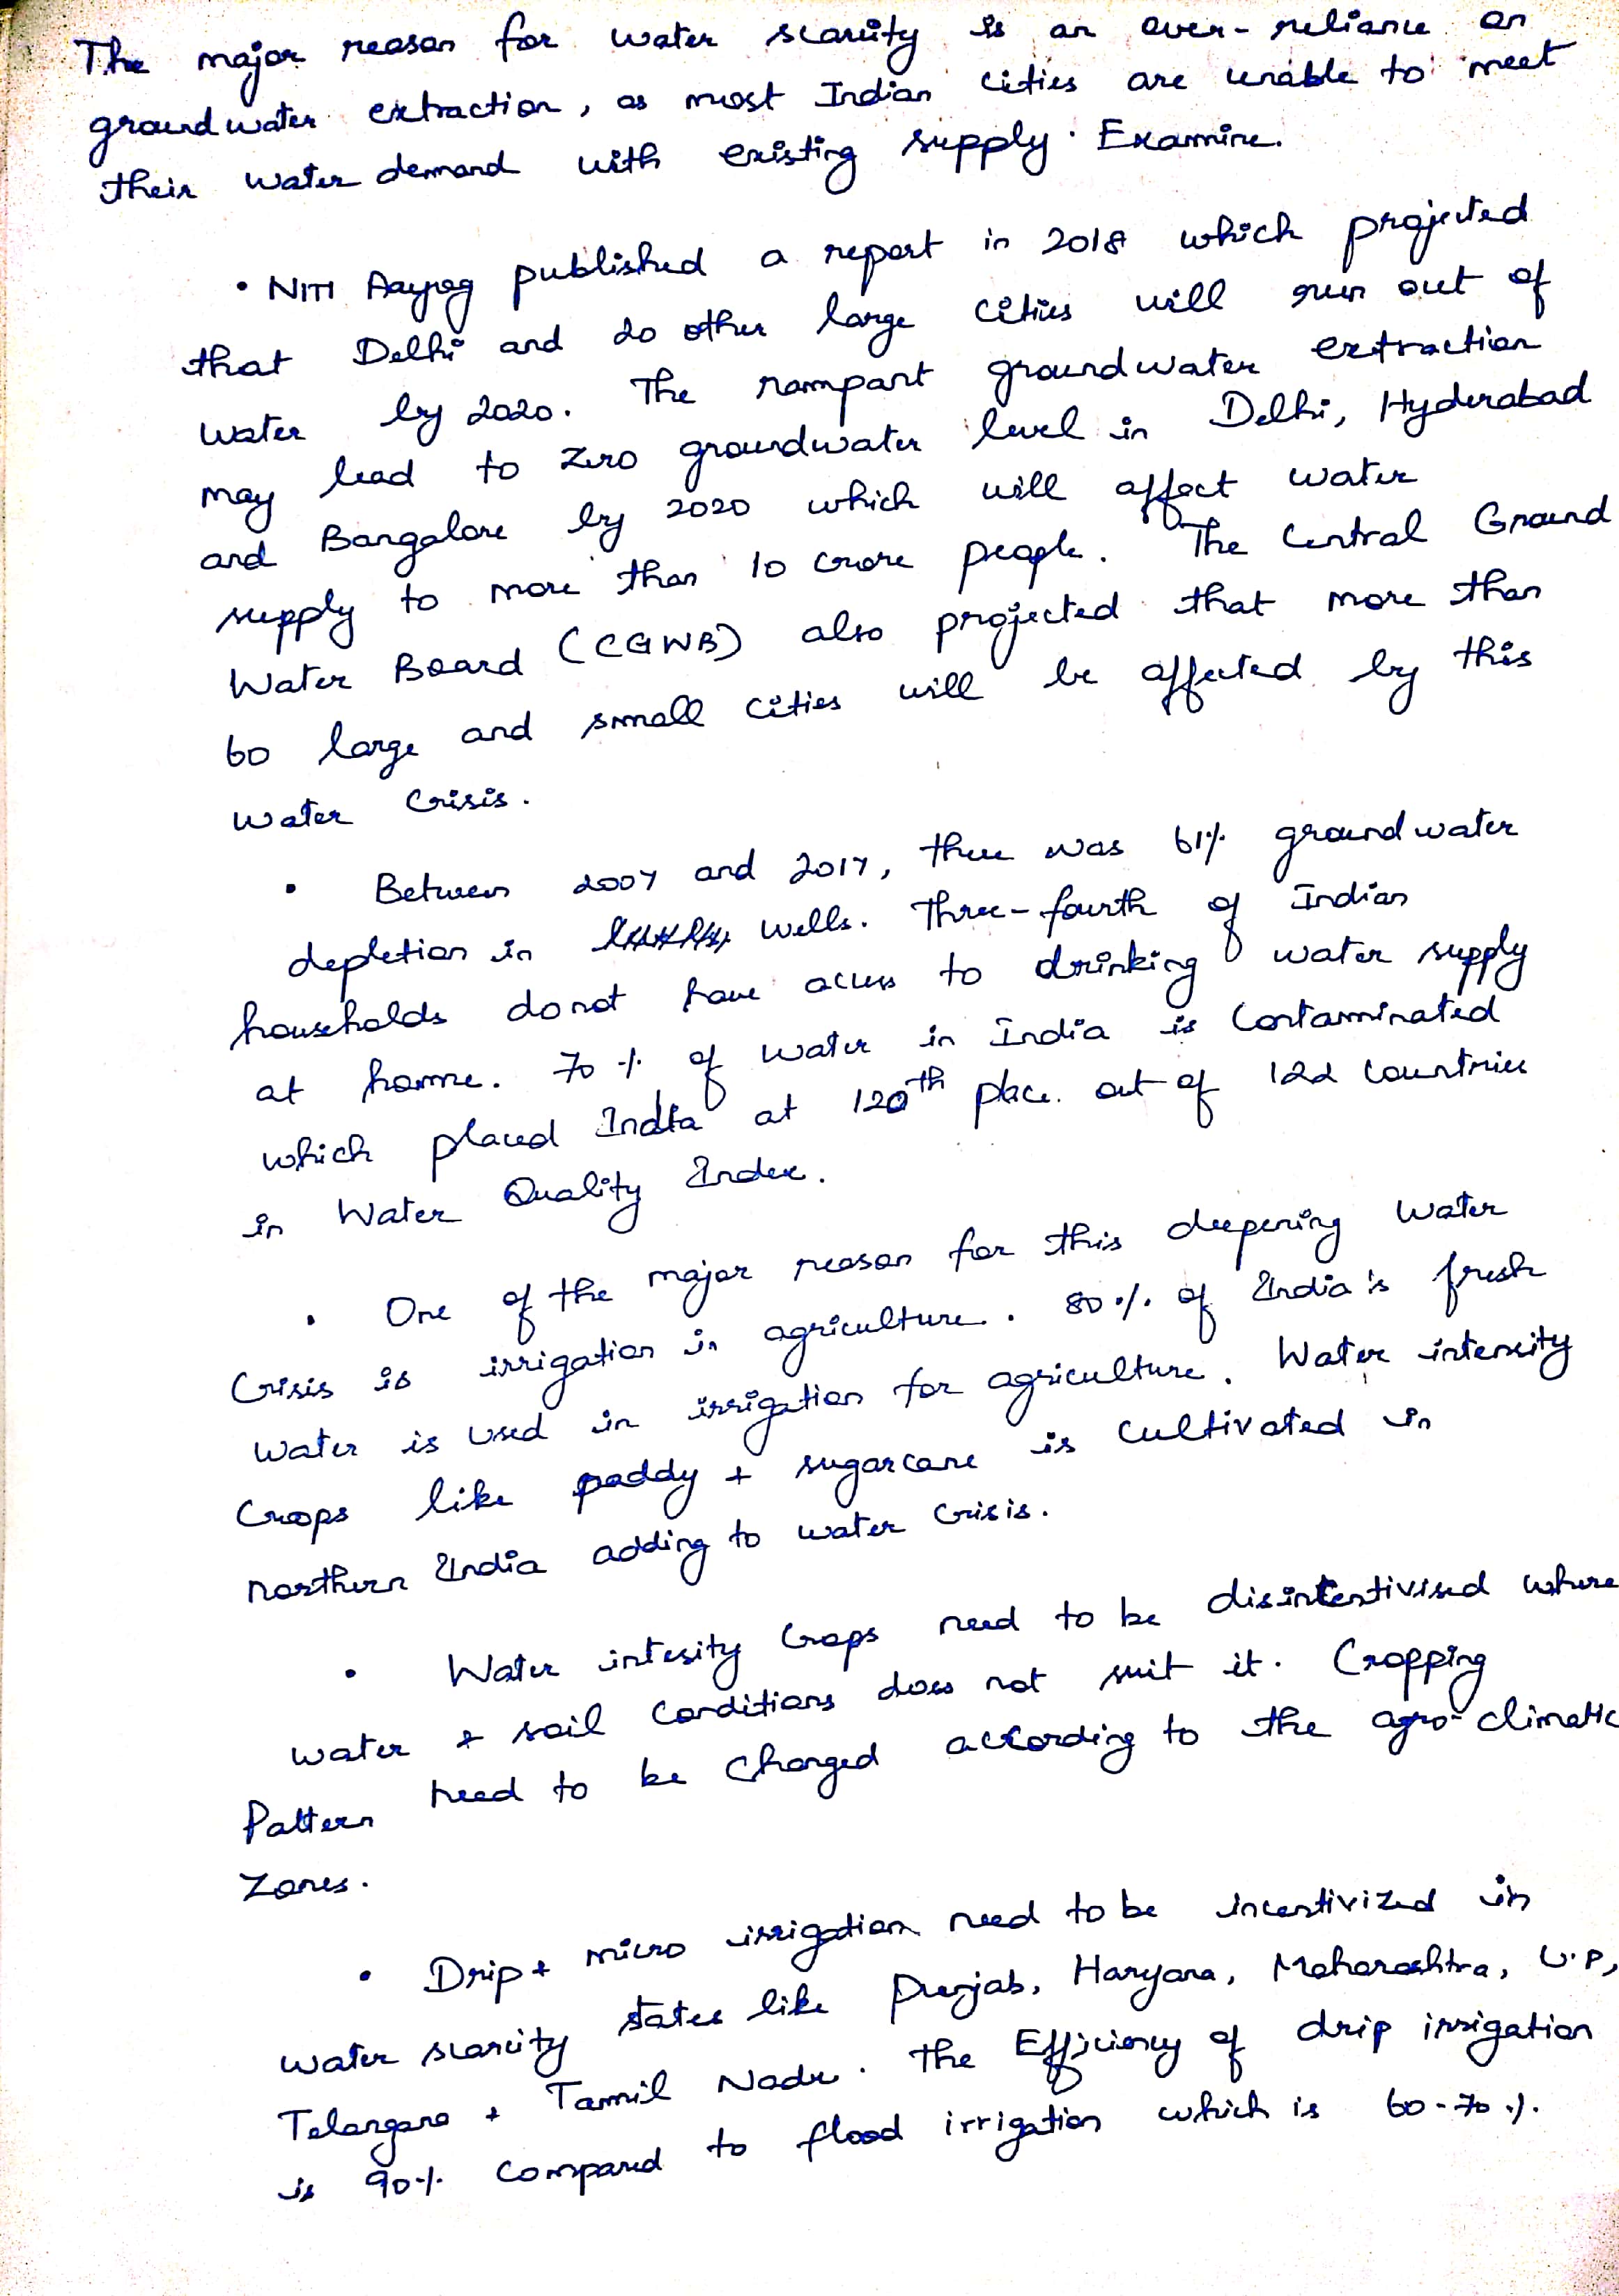 The major reason for water scarcity is an over-reliance on
groundwater extraction, as most Indian cities are unable to meet
their water demand with existing supply. Examine.
• NITI Aayog published a report in 2018 which projected
that Delhi and 20 other large cities will run out of
water by 2020. The rampant groundwater extraction
may lead to zero groundwater level in Delhi, Hyderabad
and Bangalore by 2020 which will affect water
supply to more than 10 crore people. The Central Ground
Water Board (CGWB) also projected that more than
60 large and small cities will be affected by this
water crisis.
• Between 2007 and 2017, there was 61% groundwater
depletion in wells. Three-fourth of Indian
households do not have access to drinking water supply
at home. 70% of water in India is contaminated
which placed India at 120th place out of 122 countries
in Water Quality Index.
• One of the major reason for this deepening water
crisis is irrigation in agriculture. 80% of India's fresh
water is used in irrigation for agriculture. Water intensity
crops like paddy + sugarcane is cultivated in
northern India adding to water crisis.
• Water intesity crops need to be disintentivised where
water + soil conditions does not suit it. Cropping
Pattern need to be changed according to the agro-climatic
Zones.
• Drip + micro irrigation need to be incentivized in
water scarcity states like Punjab, Haryana, Maharashtra, U.P,
Telangana + Tamil Nadu. The Efficiency of drip irrigation
is 90% compared to flood irrigation which is 60-70%.